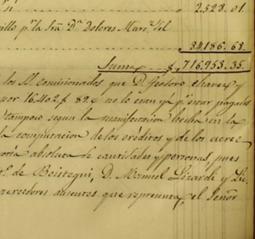 2,528.01.
illo p.r la Sra D.a Dolores Marq.s Vil
34,186.63.
Suma $ 716,953.35.
los SS. comisionados que D. Teodoro Chavez y
por 16.402 $ 82 c no lo eran ya p.r estar pagados
tampoco segun la manifestacion hecha en la
la computacion de los créditos y de los acree
oría absoluta de cantidades y personas, pues
de Beistegui, D. Manuel Lizardi y
acreedores ausentes que representa el Señor